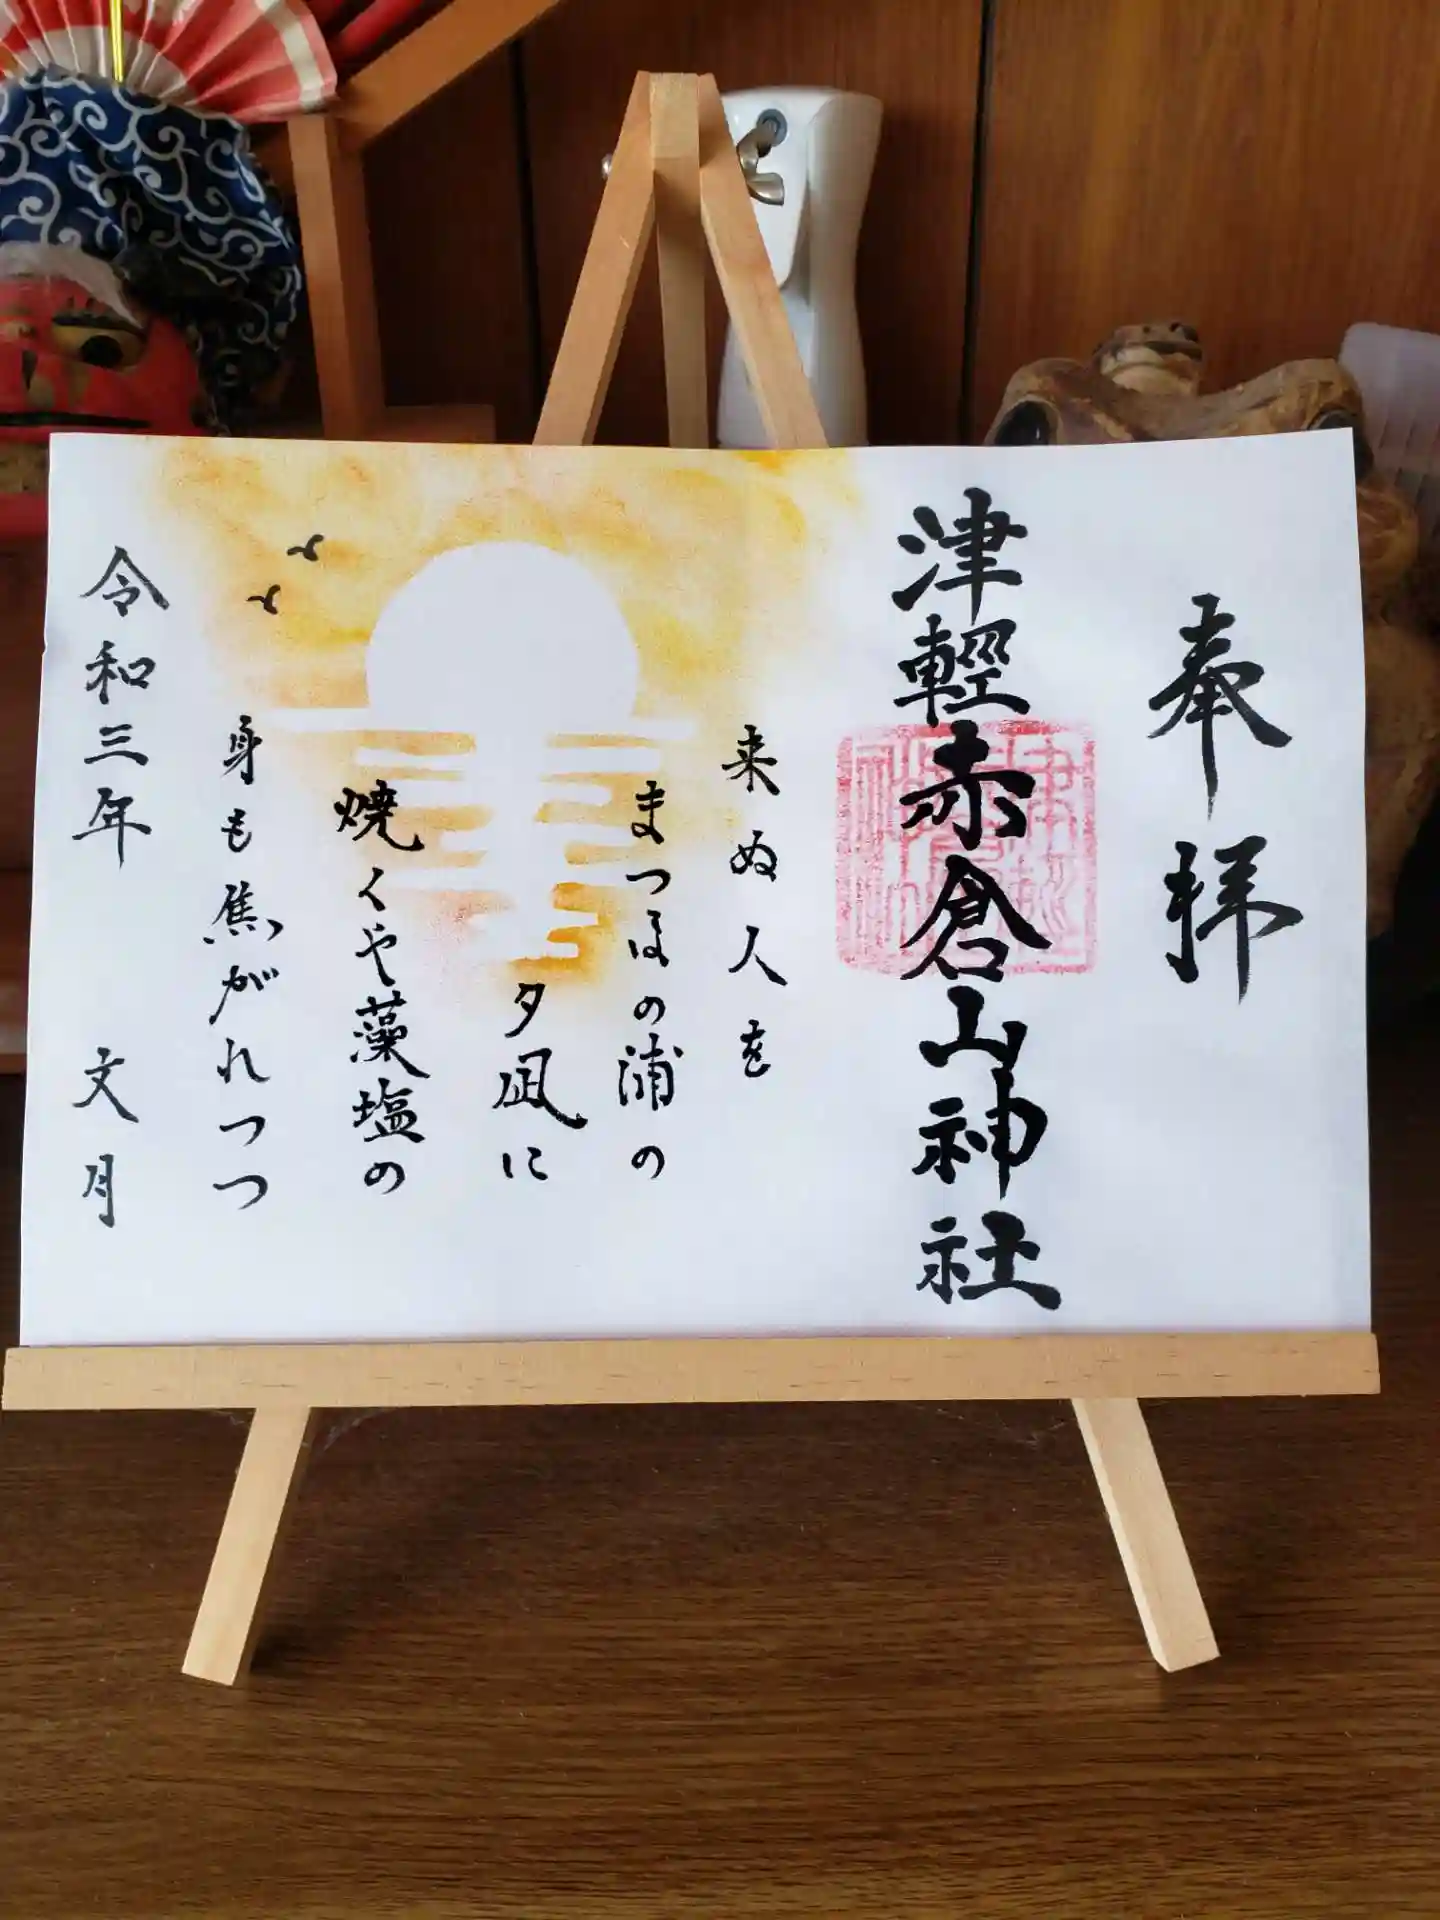 奉拝
津輕赤倉山神社
来ぬ人を
まつほの浦の
夕凪に
焼くや藻塩の
身も焦がれつつ
令和三年 文月